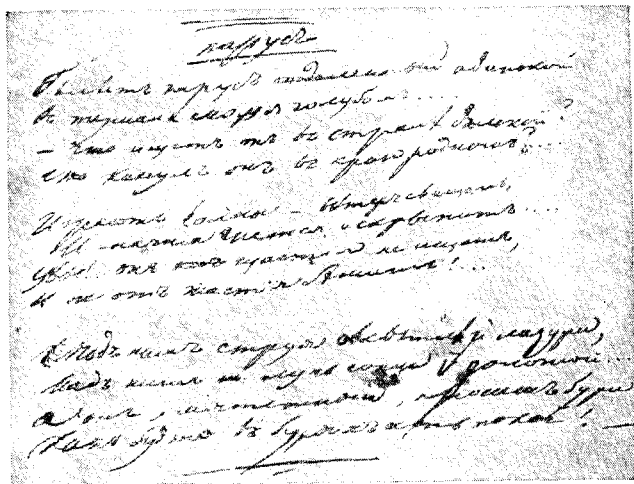 Парусъ
Бѣлѣетъ парусъ одинокой
Въ туманѣ моря голубомъ....
– Что ищетъ онъ въ странѣ далекой?
Что кинулъ онъ въ краю родномъ?...
Играютъ волны – вѣтеръ свищетъ,
И мачта гнется и скрыпитъ....
Увы! онъ щастія не ищетъ,
И не отъ щастія бѣжитъ!...
Подъ нимъ струя свѣтлѣй лазури,
Надъ нимъ лучъ солнца золотой...
А онъ, мятежный, проситъ бури
Какъ будто въ буряхъ есть покой! —